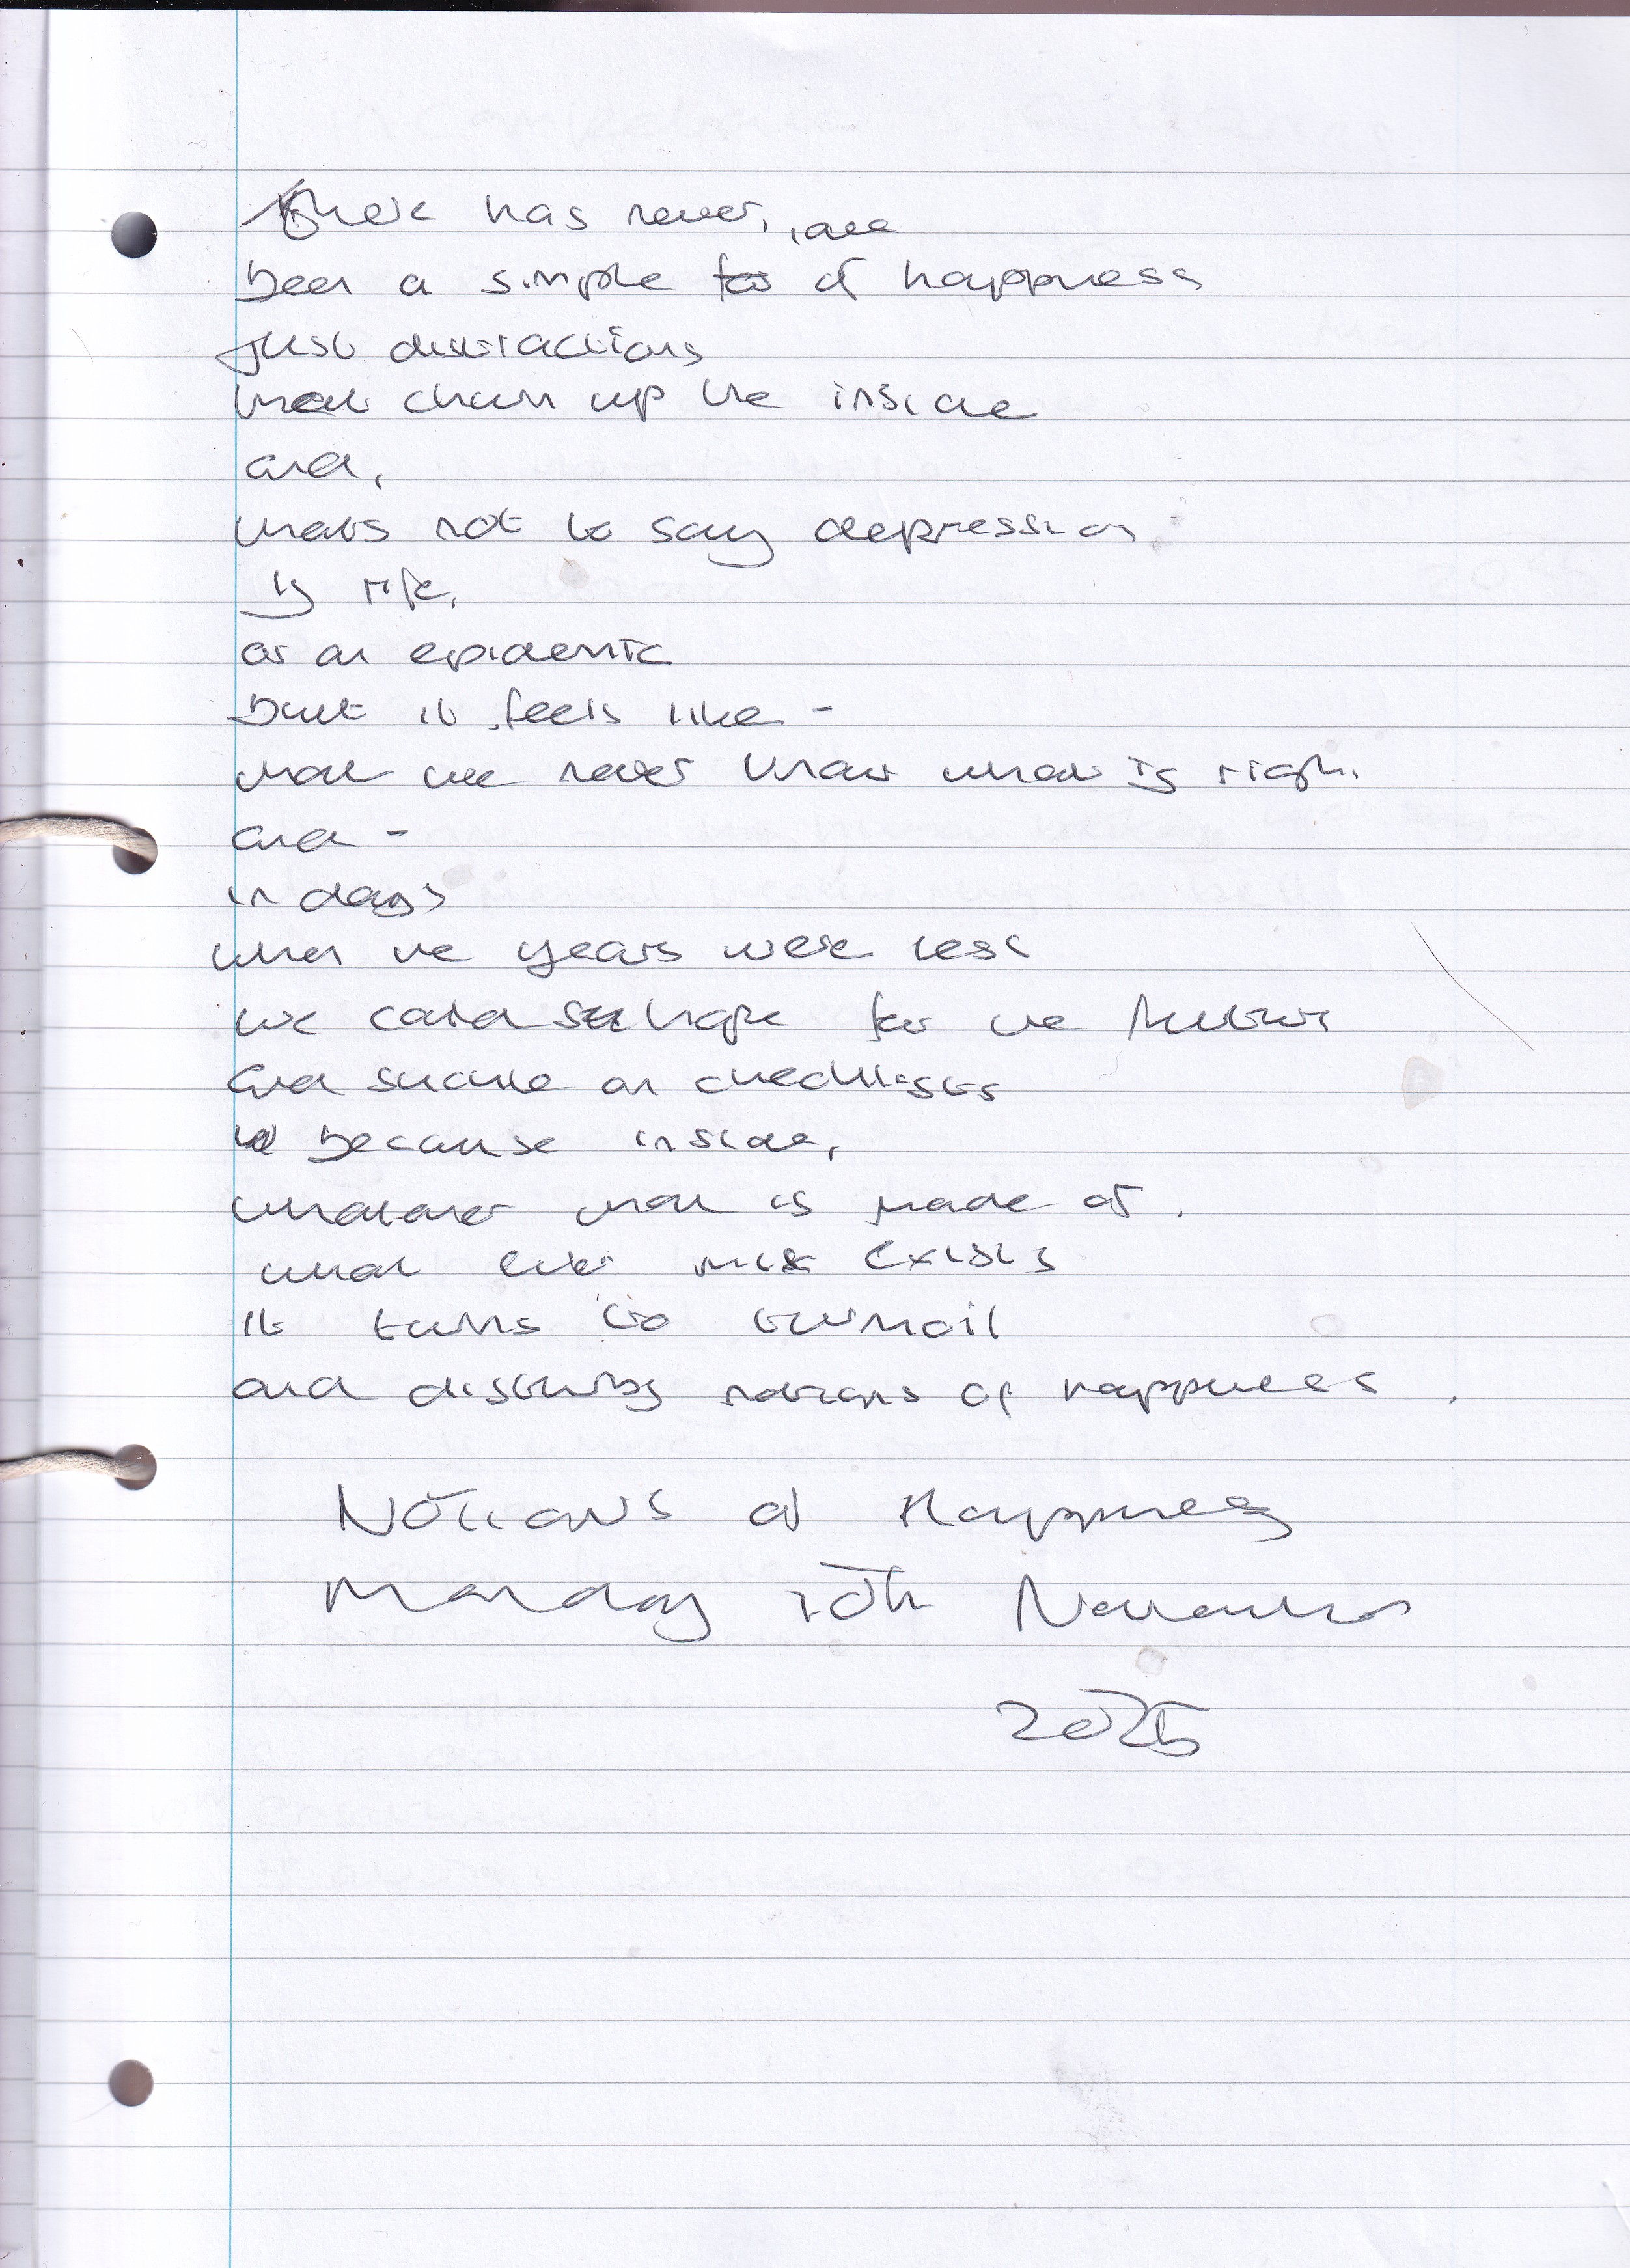 There has never, 
been a simple of happiness
just distractions
that churn up the inside
and,
that's not to say depression
is rife,
or an epidemic
but it feels like -
that we never know what is right
and -
in days
when the years were less
we could hope for the future
and suckle on checklists
because inside,
whatever that is made of,
what ever exists
it turns to turmoil
and disturbs notions of happiness.
Notions of Happiness
Monday 10th November
2025